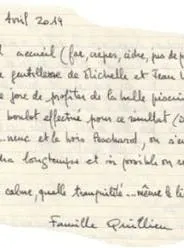 Avril 2019
accueil (far, crêpes, cidre, pas de p
gentillesse de Michelle et Jean
joie de profiter de la belle piscin
boulot effectué pour ce résultat (
et le bois Pochard, on s'en
longtemps et si possible on re
calme, quelle tranquilité... même le li
Famille Quillien